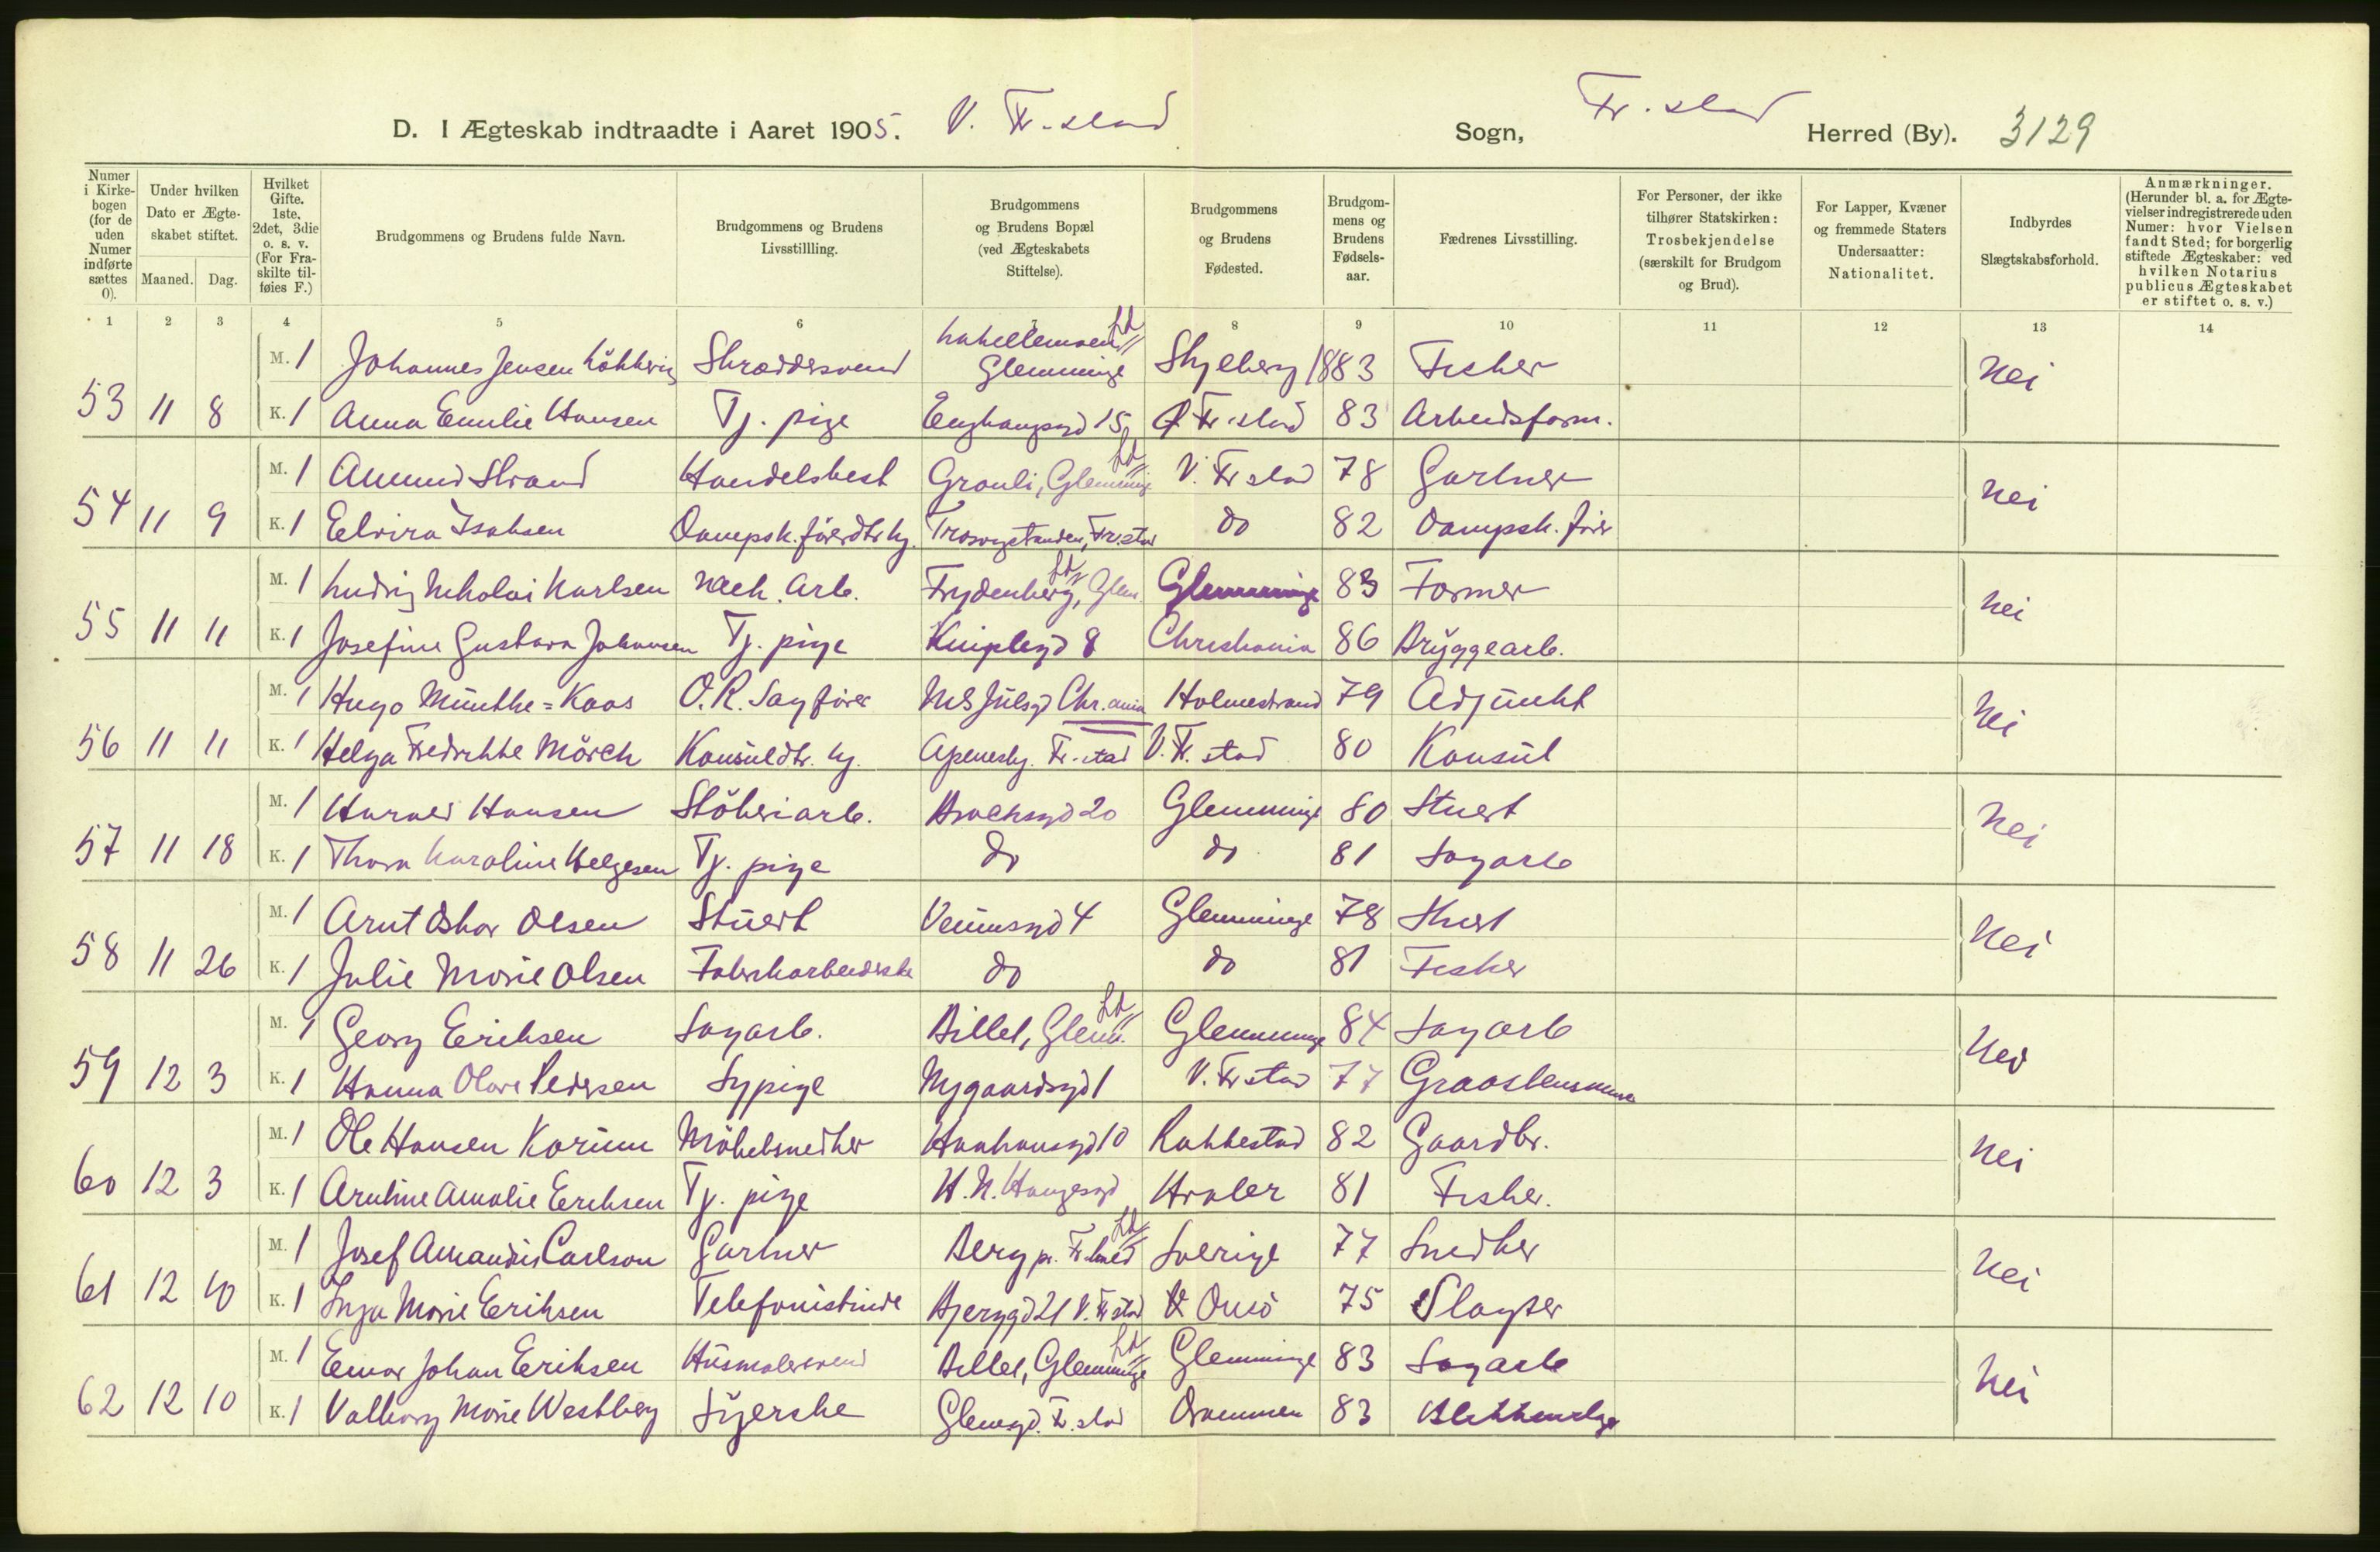 D. I Ægteskab indtraadte i Aaret 1905. V. Fr.stad Sogn, Fr.stad Herred (By). 3129
Numer i Kirkebogen (for de uden Numer indførte sættes 0).
Under hvilken Dato er Ægteskabet stiftet.
Maaned. Dag.
Hvilket Gifte. 1ste, 2det, 3die o. s. v. (For Fraskilte tilføies F.)
Brudgommens og Brudens fulde Navn.
Brudgommens og Brudens Livsstillling.
Brudgommens og Brudens Bopæl (ved Ægteskabets Stiftelse).
Brudgommens og Brudens Fødested.
Brudgommens og Brudens Fødselsaar.
Fædrenes Livsstilling.
For Personer, der ikke tilhører Statskirken: Trosbekjendelse (særskilt for Brudgom og Brud).
For Lapper, Kvæner og fremmede Staters Undersaatter: Nationalitet.
Indbyrdes Slægtskabsforhold.
Anmærkninger. (Herunder bl. a. for Ægtevielser indregistrerede uden Numer: hvor Vielsen fandt Sted; for borgerlig stiftede Ægteskaber: ved hvilken Notarius publicus Ægteskabet er stiftet o. s. v.)
1 2 3 4 5 6 8 9 10 11 12 13 14
M. 1 Johannes Jensen Skræddersvend Glemminge Skjeberg 1883 Fisker Nei
53 11 8 K. 1 Anna Emilie Hansen Tj. pige Enghaugsgd 15 Fr.stad 83 Arbeidsform.
M. 1 Amund Strand Handelsbest Grönli, Glemminge V. Fr stad 78 Gartner Nei
54 11 9 K. 1 Elvira Isaksen Dampsk. förerdtr hj. Fr.stad do 82 Dampsk. förer
M. 1 Ludvig Nikolai Karlsen Mek. Arb. Frydenberg, Glem. Glemminge 83 Former Nei
55 11 11 K. 1 Josefine Gustava Johansen Tj. pige Kniplegd 8 Christiania 86 Bryggearb.
M. 1 Hugo Münthe=Kaas O.R. Sagförer NS Julsgd Chr.ania Holmestrand 79 Adjunkt Nei
56 11 11 K. 1 Helga Fredrikke Mörch Konsuldtr. hj. Apenesbg. Fr.stad V. Fr. stad 80 Konsul
M. 1 Harald Hansen Stöberiarb. Brochsgd 20 Glemminge 80 Stuert Nei
57 11 18 K. 1 Thora Karoline Helgesen Tj. pige do do 81 Sagarb
M. 1 Arnt Oskar Olsen Stuert Venusgd 4 Glemminge 78 Stuert Nei
58 11 26 K. 1 Julie Marie Olsen Fabrikarbeiderske do do 81 Fisker
M. 1 Georg Eriksen Sagarb. Billet, Glem. Glemminge 84 Sagarb Nei
59 12 3 K. 1 Hanna Olava Pedersen Sypige Nygaardsgd 1 V. Fr stad 77 Graastensmurer
M. 1 Ole Hansen Karum Möbelsnedker Haakonsgd 10 Rakkestad 82 Gaardbr. Nei
60 12 3 K. 1 Arntine Amalie Eriksen Tj. pige H.N. Haugesgd Hvaler 81 Fisker.
M. 1 Josef Amandus Carlson Gartner Berg pr. Fr.hald Sverige 77 Snedker Nei
61 12 10 K. 1 Inga Marie Eriksen Telefonistinde Bjerggd 21 V. Fr stad Onsö 75 Slagter
M. 1 Einar Johan Eriksen Husmalersvend Billet, Glemminge Glemminge 83 Sagarb Nei
62 12 10 K. 1 Valborg Marie Westberg Syerske Glemgd. Fr. stad Drammen 83 Blikkenslager